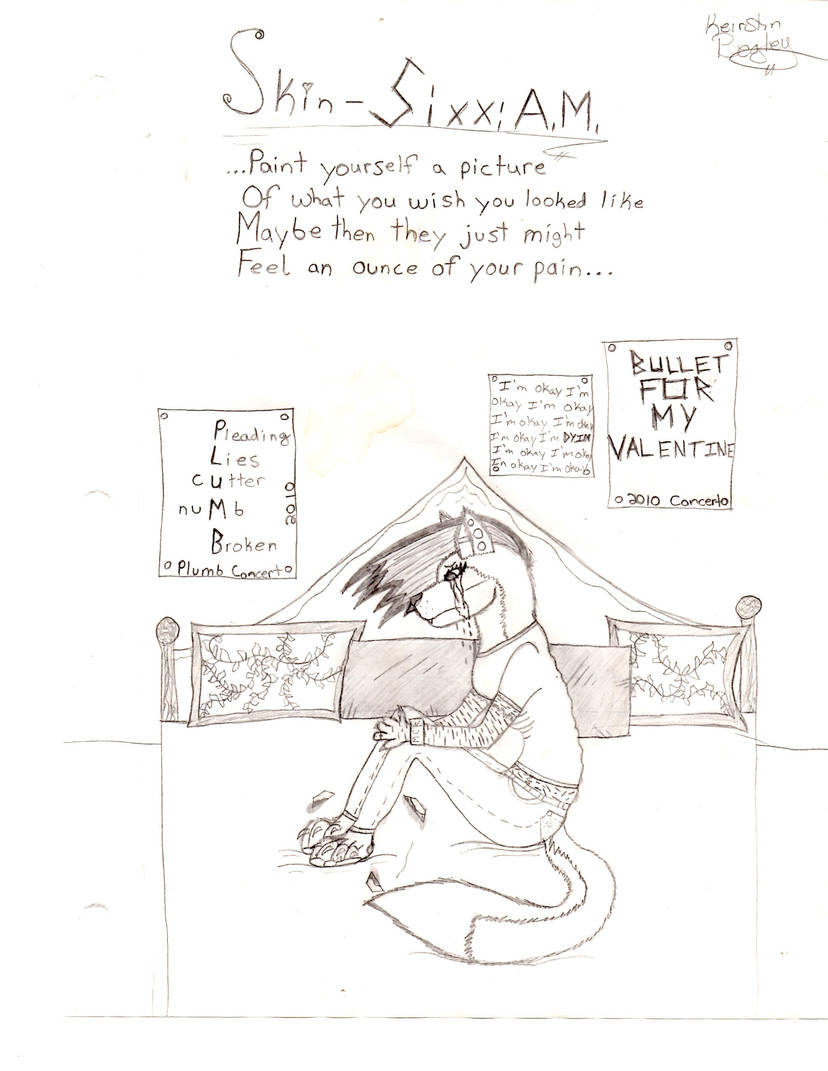 Keirstin
Skin - Sixx: A.M.
...Paint yourself a picture
Of what you wish you looked like
Maybe then they just might
Feel an ounce of your pain...
Pleading
Lies
cutter
numb
Broken
2010
Plumb Concert
I'm okay I'm
okay I'm okay
I'm okay I'm okay
I'm okay I'm DYIN
I'm okay I'm okay
I'm okay I'm okay
BULLET
FOR
MY
VALENTINE
2010 Concert